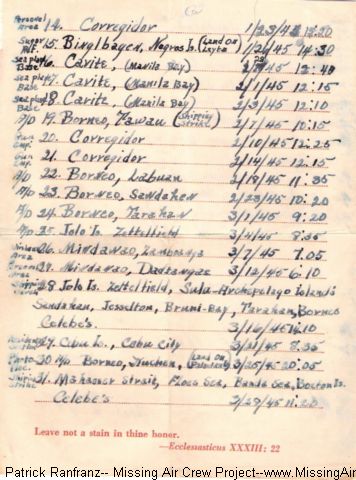 Personel Area 14. Corregidor 1/23/45 12:20
Supply Ref. 15. Binglbagen, Negros Is. (Land On Leyte) 1/26/45 14:30
Sea plane Base 16. Cavite, (Manila Bay) 12:40
Sea plane Base 17. Cavite, (Manila Bay) 2/1/45 12:15
Sea plane Base 18. Cavite, (Manila Bay) 2/3/45 12:10
A/D 19. Borneo, Tawau (Shipping Strike) 2/7/45 10:15
Gun Emp. 20. Corregidor 2/10/45 12:25
Gun Emp. 21. Corregidor 2/14/45 12:15
A/D 22. Borneo, Labuan 2/18/45 11:35
A/D 23. Borneo, Sandahen 2/23/45 10:20
A/D 24. Borneo, Tarahan 3/1/45 9:20
A/D 25. Jolo Is. Zettelfield 3/4/45 8:35
Area 26. Mindanao, Zamboanga 3/7/45 7:05
Area 27. Mindanao, Dadtangae 3/12/45 6:10
28. Jolo Is. Zettelfield, Sulu-Archepelago Island's
Sandahan, Jesselton, Bruni-Bay, Tarahan, Borneo
Celebe's. 3/16/45 14:10
Area 29. Cebu Is., Cebu City 3/21/45 8:35
30. Borneo, Kuchen, (Land On Palawan) 3/25/45 20:05
31. Mahasser Strait, Flores Sea, Banda Sea, Is.
Celebe's 3/29/45 11:20
Leave not a stain in thine honor.
—Ecclesiasticus XXXIII: 22
Patrick Ranfranz-- Missing Air Crew Project--www.MissingAir